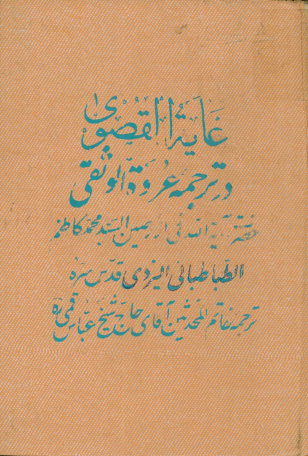 غایة القصوی
در ترجمه عروة الوثقی
حضرت آیة الله فی الارضین السید محمد کاظم
الطباطبائی الیزدی قدس سره
ترجمه خاتم المحدثین آقای حاج شیخ عباس قمی ره